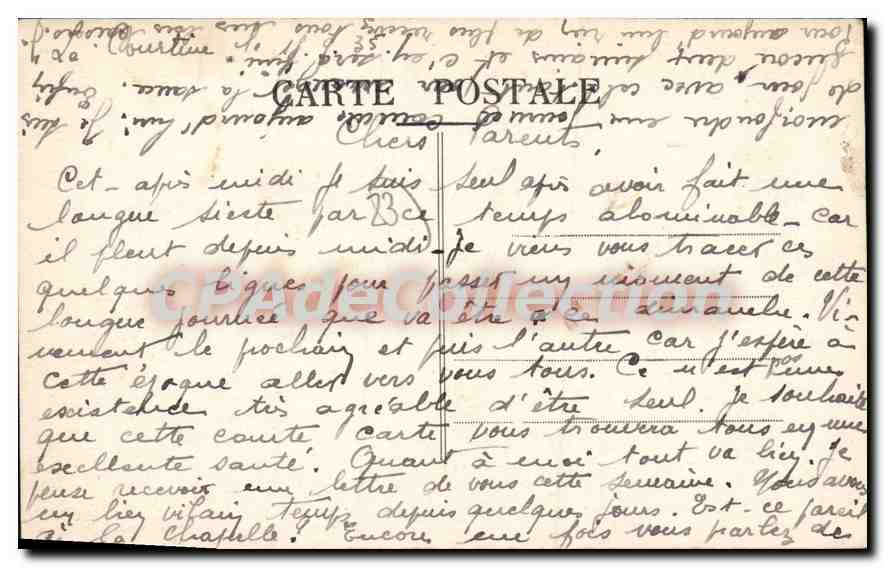 La Courtine
CARTE POSTALE
Chers Parents,
Cet-après midi Je suis seul après avoir fait une
longue sieste par ce temps abominable car
23
il pleut depuis midi - Je viens vous tracer ces
quelques lignes pour passer un moment de cette
longue journée que va être ce dimanche. Vi-
vement le prochain et puis l'autre car j'espère à
cette époque aller vers vous tous. Ce n'est pas une
existence très agréable d'être seul. Je souhaite
que cette courte carte vous trouvera tous en une
excellente santé. Quant à moi tout va bien. Je
pense recevoir une lettre de vous cette semaine. Nous avons
un bien vilain temps depuis quelques jours. Est-ce pareil
à La Chapelle? Encore une fois vous parlez de
aujourd'hui. Je suis
de jour avec la sauce. Enfin
encore deux semaines et c'en sera fini.
Pour aujourd'hui rien de plus recevez tous
CPAdeCollection.com